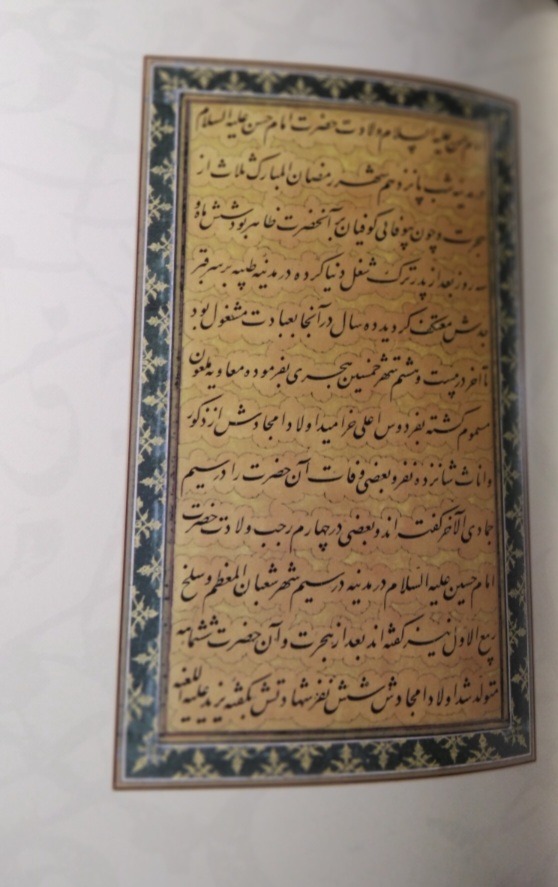 علیه السلام ولادت حضرت امام حسن علیه السلام
در مدینه شب پانزدهم شهر رمضان المبارک ثلاث از
هجرت و چون بیوفایی کوفیان بر آنحضرت ظاهر بود شش ماه و
سه روز بعد از پدر ترک شغل دنیا کرده در مدینه طیبه بر سر قبر
جدش معتکف گردیده ده سال در آنجا بعبادت مشغول بود
تا آخر در بیست و هشتم شهر خمسین هجری بفرموده معاویه ملعون
مسموم گشته بفردوس اعلی خرامید اولاد امجادش از ذکور
و اناث شانزده نفر و بعضی وفات آن حضرت را در سیم
جمادی الآخر گفته اند و بعضی در چهارم رجب ولادت حضرت
امام حسین علیه السلام در مدینه در سیم شهر شعبان المعظم و سلخ
ربیع الاول نیز گفته اند بعد از هجرت و آن حضرت ششماهه
متولد شد اولاد امجادش شش نفر شهادتش بگفته یزید علیه اللعنه